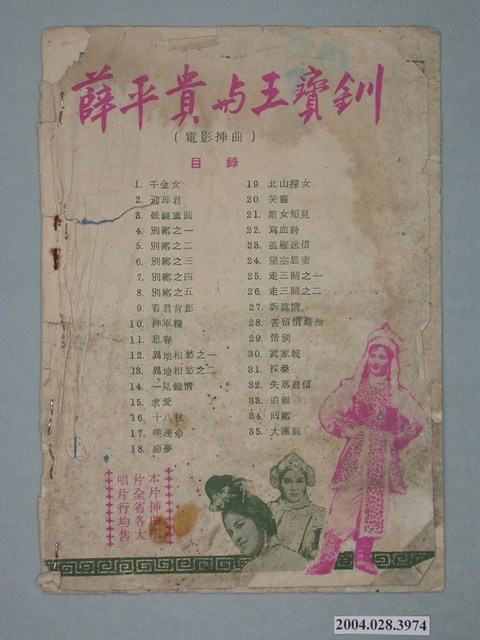 薛平貴與王寶釧
(電影揷曲)
目錄
1. 千金女
2. 迎郎君
3. 破鏡重圓
4. 別窰之一
5. 別窰之二
6. 別窰之三
7. 別窰之四
8. 別窰之五
9. 看君背影
10. 押軍糧
11. 思春
12. 異地相愁之一
13. 異地相愁之二
14. 一見鍾情
15. 求愛
16. 十八秋
17. 嘆運命
18. 惡夢
19. 北山探女
20. 哭靈
21. 節女短見
22. 寫血詩
23. 孤雁送信
24. 望空思妻
25. 走三關之一
26. 走三關之二
27. 訴眞情
28. 苦留情難捨
29. 惜別
30. 武家坡
31. 採桑
32. 失落君信
33. 迫親
34. 回窰
35. 大團圓
本片揷曲
片全省各大
唱片行均售
2004.028.3974